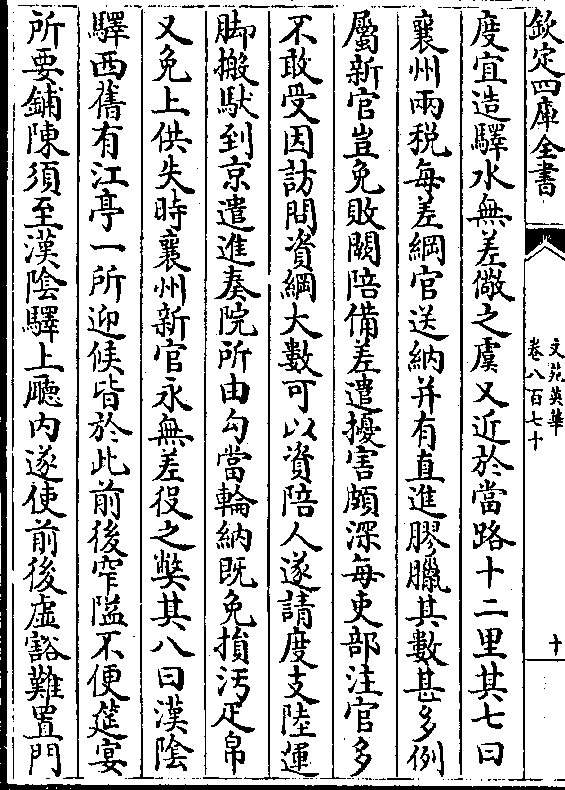 欽定四庫全書
文苑英華
卷八百七十
十
度宜造驛水無差儆之虞又近於當路十二里其七曰
襄州兩税每差綱官送納并有直進膠臘其數甚多例
屬新官豈免敗闕陪備差遣擾害頗深每吏部注官多
不敢受因訪問資綱大數可以資陪人遂請度支陸運
脚搬馱到京遣進奏院所由勾當輪納既免損汚疋帛
又免上供失時襄州新官永無差役之獘其八曰漢隂
驛西舊有江亭一所迎候皆於此前後窄隘不便筵宴
所要鋪陳須至漢隂驛上廳内遂使前後虚豁難置門